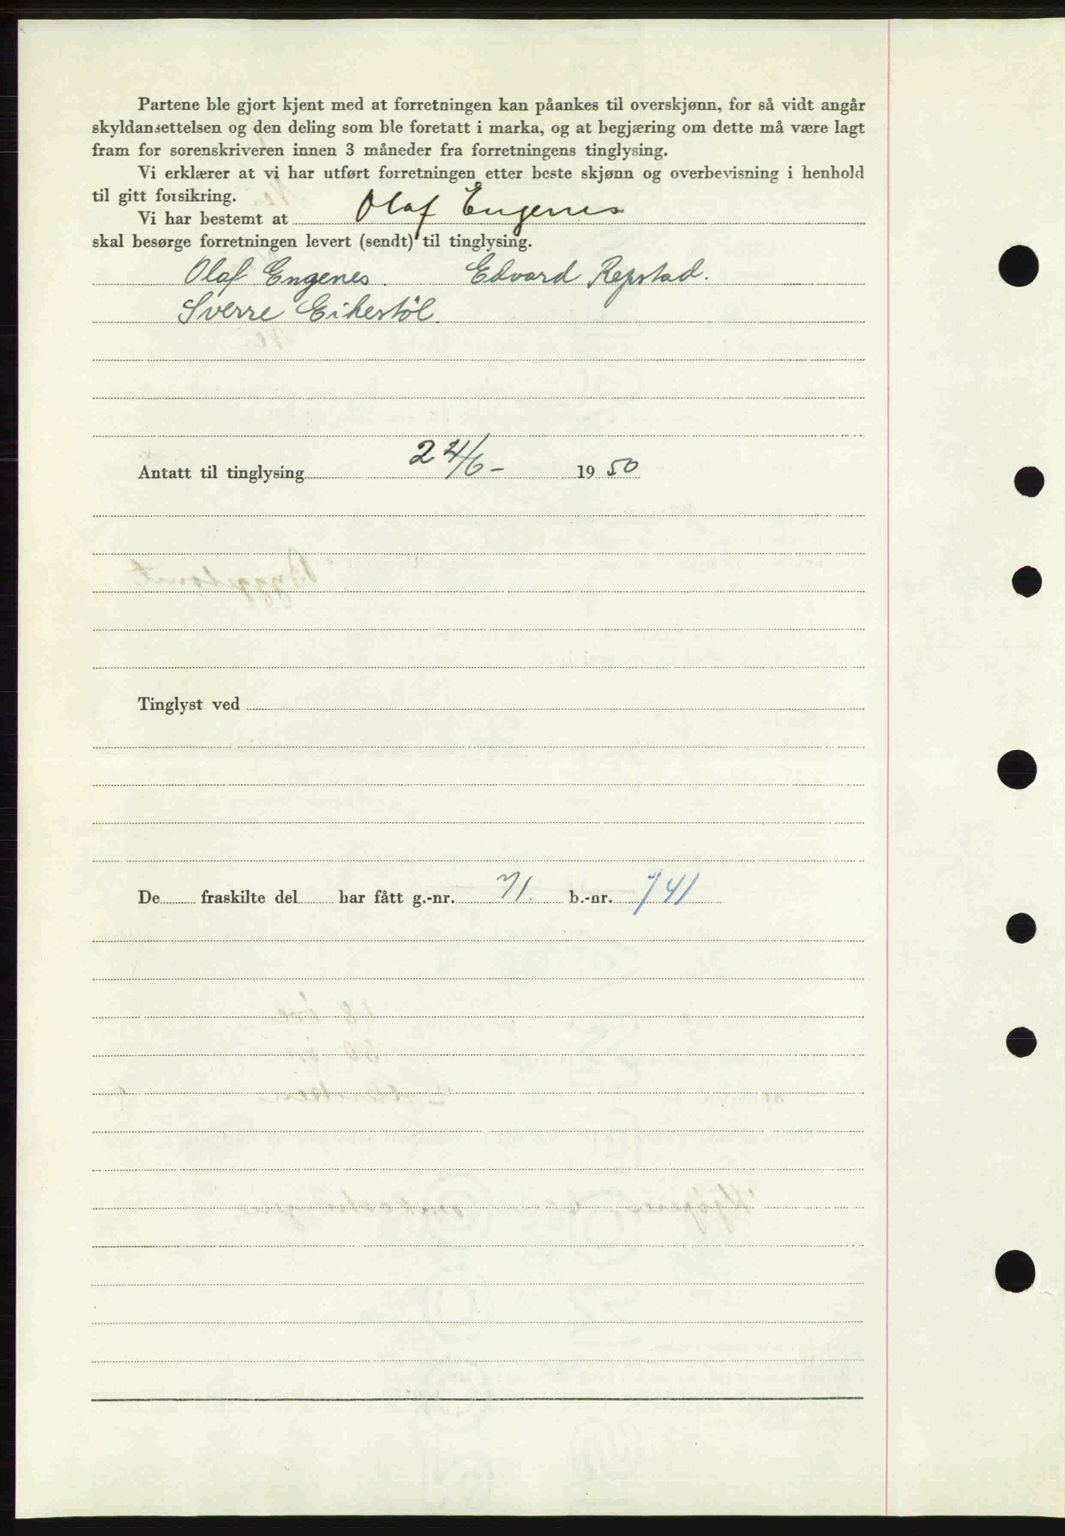 Partene ble gjort kjent med at forretningen kan påankes til overskjønn, for så vidt angår
skyldansettelsen og den deling som ble foretatt i marka, og at begjæring om dette må være lagt
fram for sorenskriveren innen 3 måneder fra forretningens tinglysing.
Vi erklærer at vi har utført forretningen etter beste skjønn og overbevisning i henhold
til gitt forsikring.
Vi har bestemt at Olaf Engenes
skal besørge forretningen levert (sendt) til tinglysing.
Olaf Engenes. Edvard Repstad.
Sverre Eikestøl
Antatt til tinglysing 24/6- 1950
Tinglyst ved
De fraskilte del har fått g.-nr. 71. b.-nr. 741